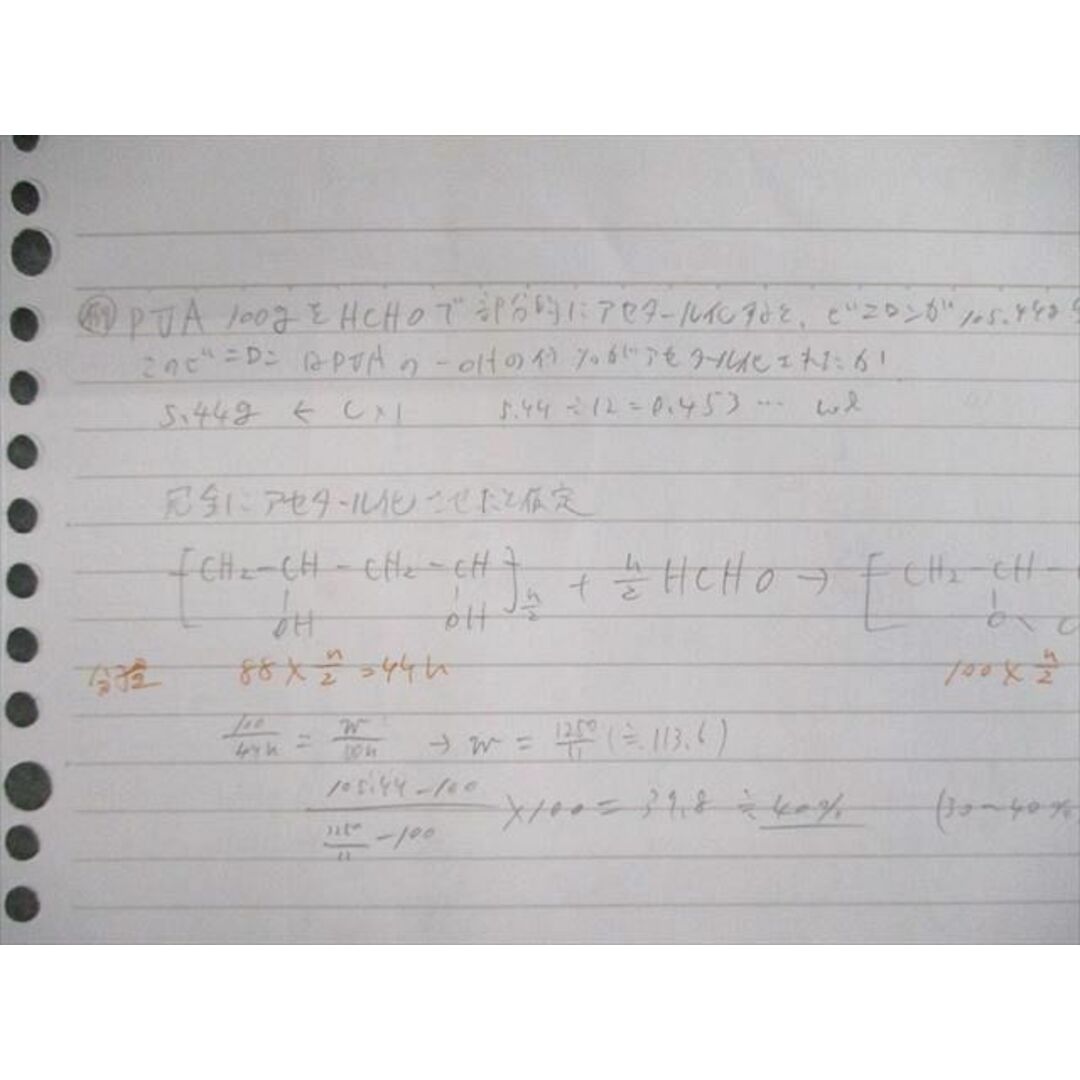 例 PVA 100gをHCHOで部分的にアセタール化すると、ビニロンが105.44g
このビニロンはPVAの-OHの何%がアセタール化されたか!
5.44g ← C×1 5.44÷12=0.453… mol
完全にアセタール化させたと仮定
[CH2-CH-CH2-CH]n/2 + n/2 HCHO → [CH2-CH-
OH OH O
分子量 88×n/2=44n 100×n/2
100/44n = w/50n → w = 1250/11 (≒113.6)
(105.44-100)/(1250/11-100) ×100=39.8≒40% (30~40%